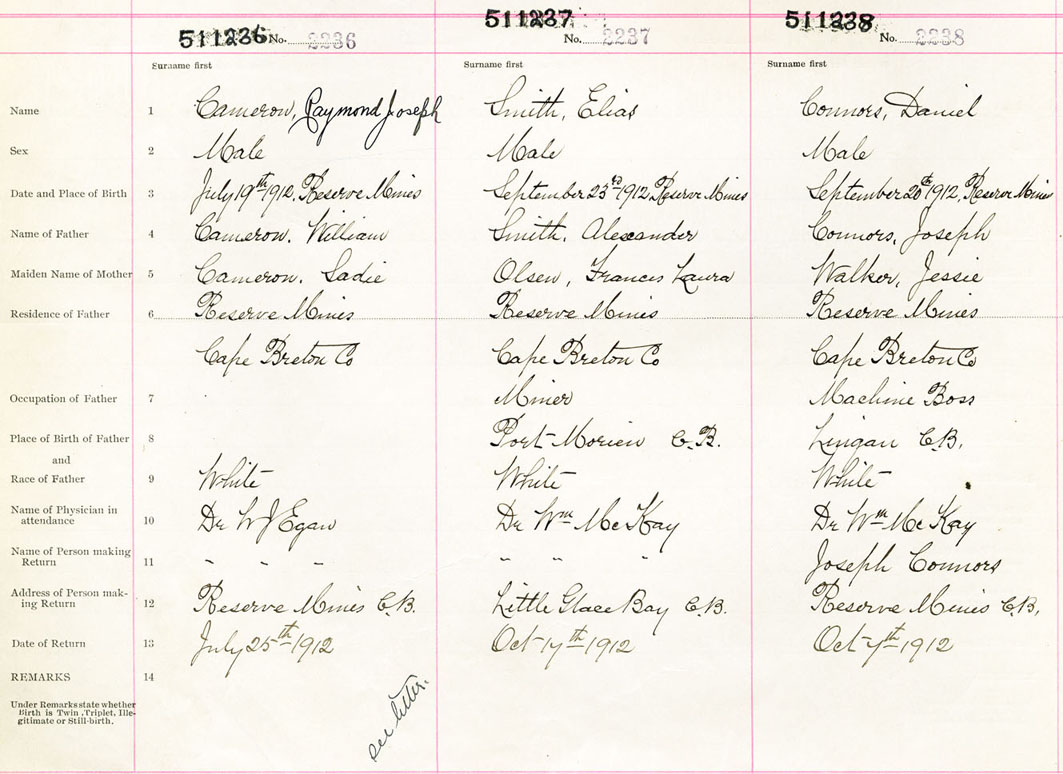 511236 No. 2236
511237
No. 2237
511238
No. 2238
Surname first Surname first Surname first
Name 1 Cameron, Raymond Joseph Smith, Elias Connors, Daniel
Sex 2 Male Male Male
Date and Place of Birth 3 July 19th 1912, Reserve Mines September 23rd 1912 Reserve Mines September 20th 1912, Reserve Mines
Name of Father 4 Cameron, William Smith, Alexander Connors, Joseph
Maiden Name of Mother 5 Cameron, Sadie Olsen, Frances Laura Walker, Jessie
Residence of Father 6 Reserve Mines Reserve Mines Reserve Mines
Cape Breton Co Cape Breton Co Cape Breton Co
Occupation of Father 7 Miner Machine Boss
Place of Birth of Father 8 Port Morien C.B. Lingan C.B.
and
Race of Father 9 White White White
Name of Physician in
attendance 10 Dr W J Egan Dr Wm McKay Dr Wm McKay
Name of Person making
Return 11 " " " " " " Joseph Connors
Address of Person mak-
ing Return 12 Reserve Mines C.B. Little Glace Bay C.B. Reserve Mines C.B.
Date of Return 13 July 25th 1912 Oct 17th 1912 Oct 7th 1912
REMARKS 14
Under Remarks state whether
Birth is Twin, Triplet, Ille-
gitimate or Still-birth.
see letter.